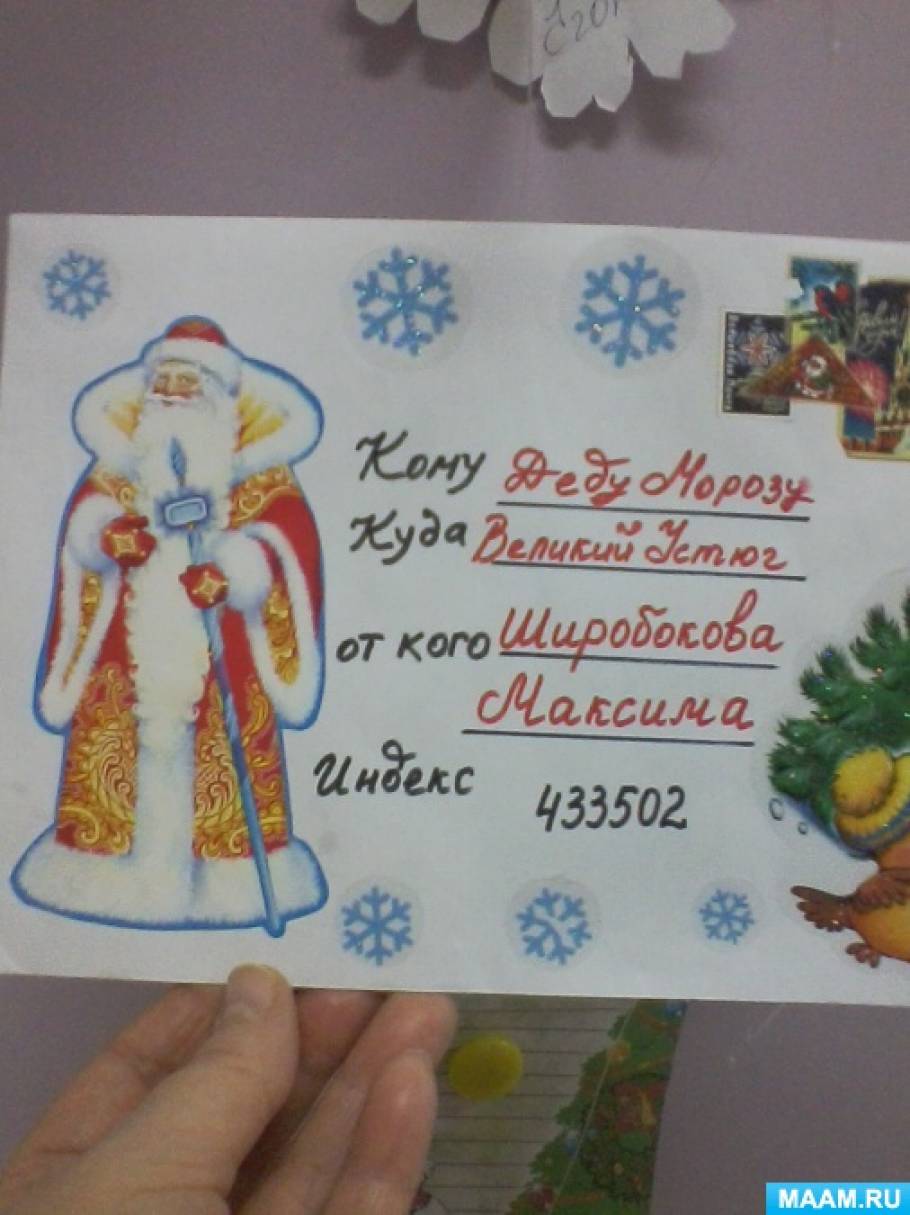 Кому Деду Морозу
Куда Великий Устюг
от кого Широбокова
Максима
Индекс 433502
MAAM.RU